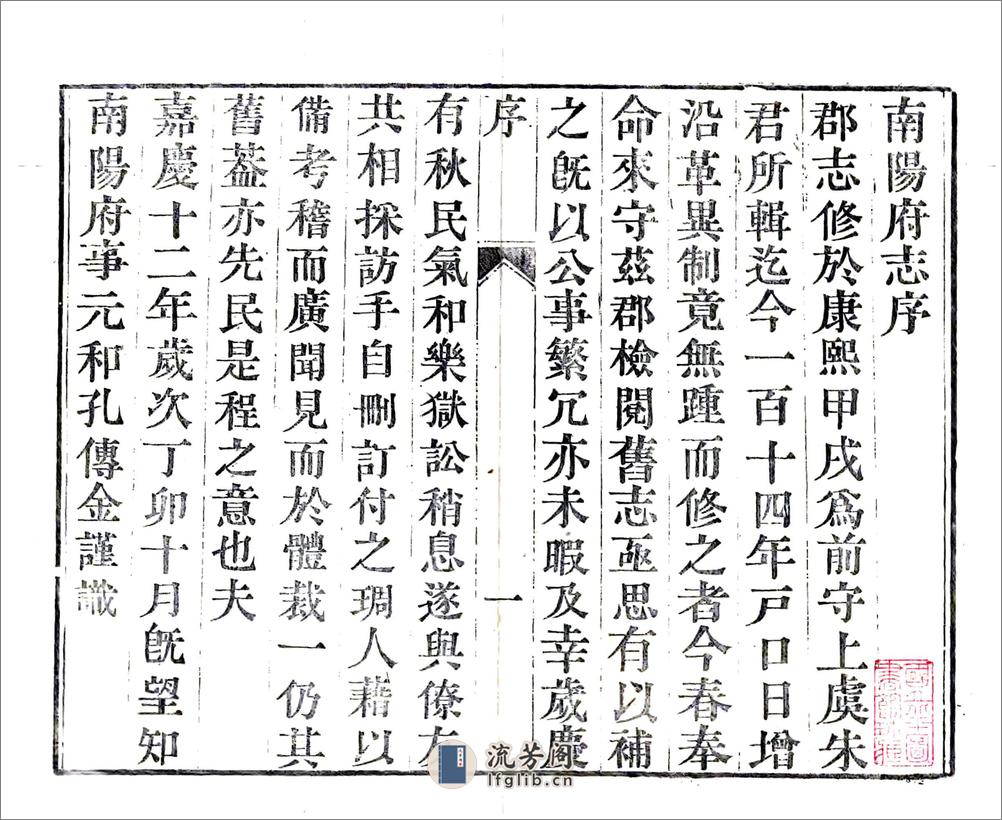 南陽府志序
郡志修於康熙甲戌爲前守上虞朱
君所輯迄今一百十四年戸口日增
沿革異制竟無踵而修之者今春奉
命來守茲郡檢閱舊志亟思有以補
之旣以公事繁冗亦未暇及幸歲慶
序
一
有秋民氣和樂獄訟稍息遂與僚友
共相採訪手自刪訂付之琱人藉以
備考稽而廣聞見而於體裁一仍其
舊葢亦先民是程之意也夫
嘉慶十二年歲次丁卯十月旣望知
南陽府事元和孔傳金謹識
流芳閣
lfglib.cn